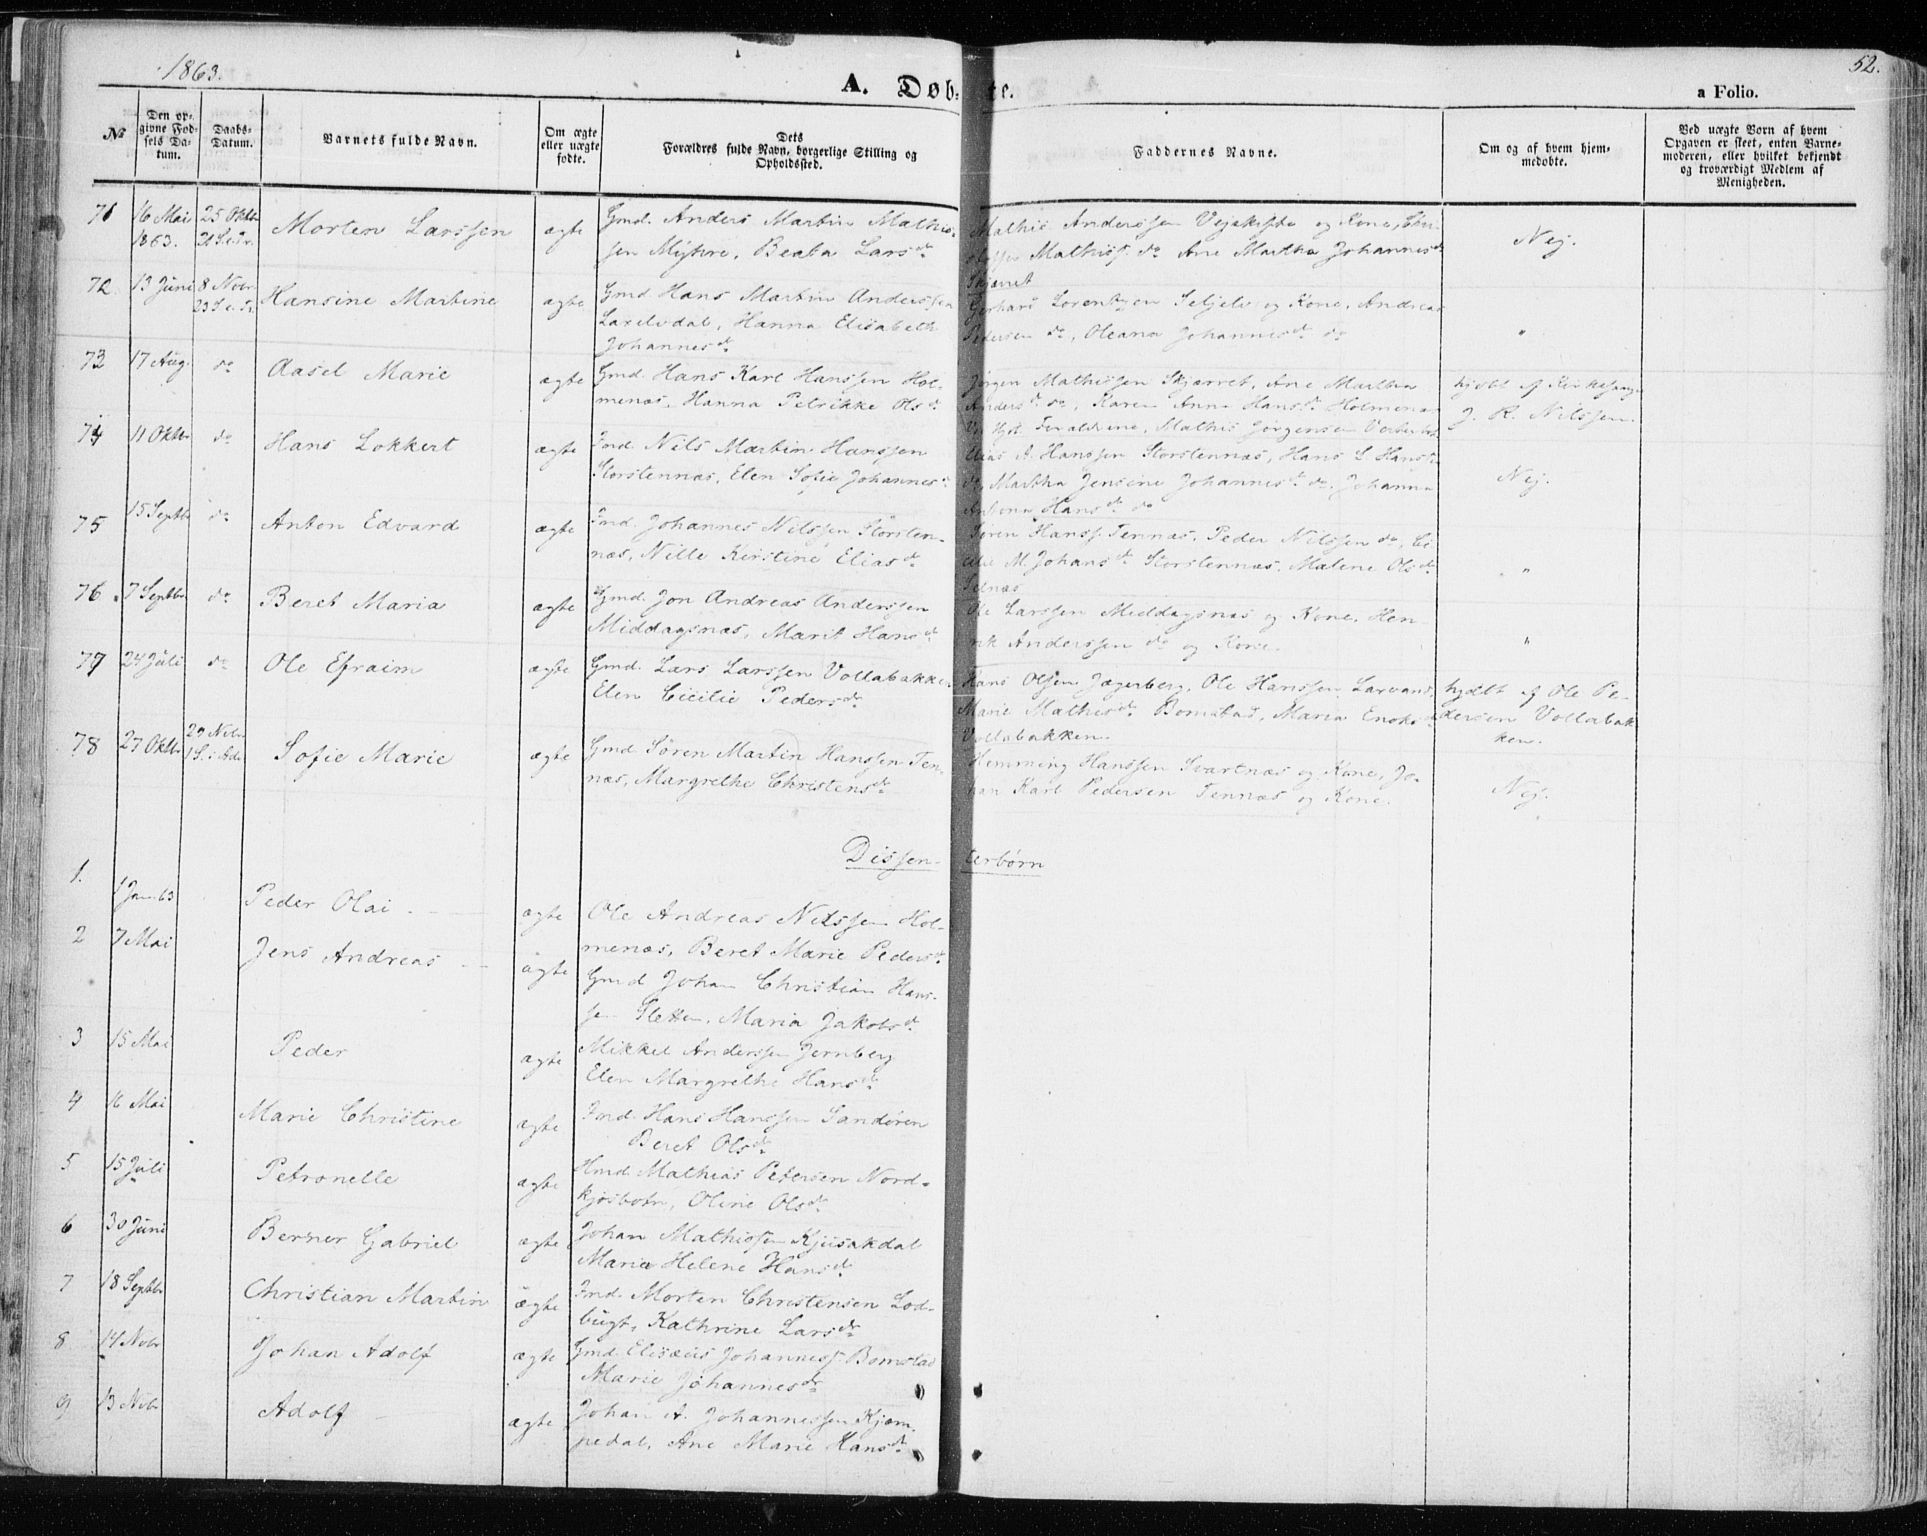 1863.
52.
A. Døbte.
a Folio.
№
Den opgivne Fødsels Datum.
Daabs-Datum.
Barnets fulde Navn.
Om ægte eller uægte fødte.
Dets Forældres fulde Navn, borgerlige Stilling og Opholdssted.
Faddernes Navne.
Om og af hvem hjemmedøbte.
Ved uægte Børn af hvem Opgaven er skeet, enten Barnemoderen, eller hvilket bekjendt og troværdigt Medlem af Menigheden.
71 16 Mai 1863. 25 Oktbr 21 S.e.Tr. Morten Larssen ægte Gmd. Anders Martin Mathis-
sen Mystre, Berta Larsdr
Mathis Anderssen og Kone,
Mathiss. do Ane Martha Johannesdr
Skjærret
Nej.
72. 13 Juni 8 Novbr 23 S.e.Tr. Hansine Martine ægte Gmd. Hans Martin Anderssen
Laxelvdal, Hanna Elisabeth
Johannesdr
Gerhard Lorentzen Seljelv og Kone, Andreas
Pedersen do, Oleana Johannesdr do
"
73 17 Aug. do Aasel Marie ægte Gmd. Hans Karl Hanssen Hol-
menæs, Hanna Petrikke Olsdr
Jørgen Mathissen Skjærret, Ane Martha
Andersdr do, Karen Anna Hansdr Holmenæs
hjdbt af Kirkesanger
J. R. Nilssen.
74 11 Oktbr do Hans Lokkert ægte Ind. Nils Martin Hanssen
Storstennæs, Elen Sofie Johannesdr
Mathis Jørgensen
Elias A. Hanssen Storstennæs, Hans L. Hanss.
do, Martha Jensine Johannesdr do. Johanna
Antona Hansdr do
Nej.
75 15 Septbr do Anton Edvard ægte Ind. Johannes Nilssen Storsten-
næs, Nille Kirstine Eliasdr
Søren Hanss. Tennæs, Peder Nilssen do, Ce-
cilie M. Johansdr Storstennæs, Malene Olsdr
"
76 7 Septbr do Beret Maria ægte Gmd. Jon Andreas Anderssen
Middagsnæs, Marit Hansdr
Ole Larssen Middagsnæs og Kone, Hen-
rik Anderssen do og Kone.
"
77 24 Juli do Ole Efraim ægte Gmd. Lars Larssen Vollabakken
Elen Cicilie Pedersdr
Hans Olsen Jægerberg, Ole Hanssen
Marie Mathisdr Bomstad, Maria Enoksdr
Vollabakken.
hjdbt af Ole Pe-
dersen Vollabak-
ken.
78 27 Oktbr 29 Nvbr 1 S. i Adv Sofie Marie ægte Gmd Søren Martin Hanssen Ten-
næs, Margrethe Christensdr
Hemming Hanssen Svartnæs og Kone, Jo-
han Karl Pedersen Tennæs og Kone.
Nej.
Dissenterbørn
1. 1 Jan. 63 Peder Olai ægte Ole Andreas Nilssen Hol-
menæs, Beret Marie Pedersdr
2 7 Mai Jens Andreas ægte Gmd Johan Christian Hans-
sen Sletten, Maria Jakobsdr
3 15 Mai Peder ægte Mikkel Anderssen Jernberg
Elen Margrethe Hansdr
4 16 Mai Marie Christine ægte Ind. Hans Hanssen Sandøren
Beret Olsdr
5 15 Juli Petronelle ægte Hmd. Mathias Petersen Nord-
kjosbotn, Oline Olsdr
6 30 Juni Berner Gabriel ægte Johan Mathissen Kjusakdal
Maria Helene Hansdr
7 18 Septbr Christian Martin ægte Ind. Morten Christensen Lod-
bugt, Kathrine Larsdr
8 14 Nvbr Johan Adolf ægte Gmd. Elisæus Johanness. Bomstad
Marie Johannesdr
9 13 Nvbr Adolf ægte Johan A. Johannessen Kjem-
pedal, Ane Marie Hansdr